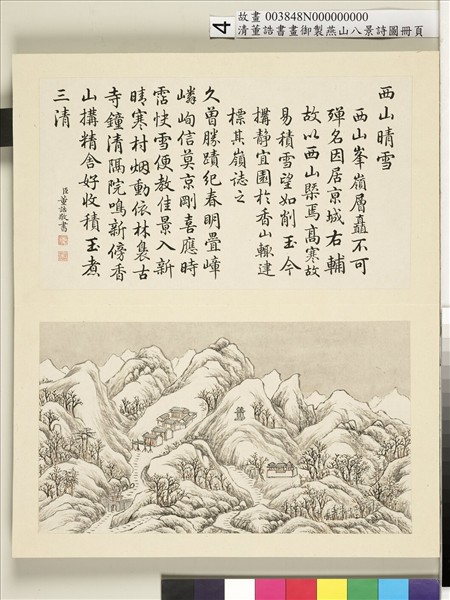 4
故畫 003848N000000000
清董誥書畫御製燕山八景詩圖冊頁
西山晴雪
西山峯嶺層矗不可
殫名因居京城右輔
故以西山槩焉高寒故
易積雪望如削玉今
構靜宜園於香山輙建
標其嶺誌之
久曽勝蹟紀春明疊嶂
嶙峋信莫京剛喜應時
霑快雪便教佳景入新
晴寒村烟動依林裊古
寺鐘清隔院鳴新傍香
山搆精舍好收積玉煮
三清
臣董誥敬書